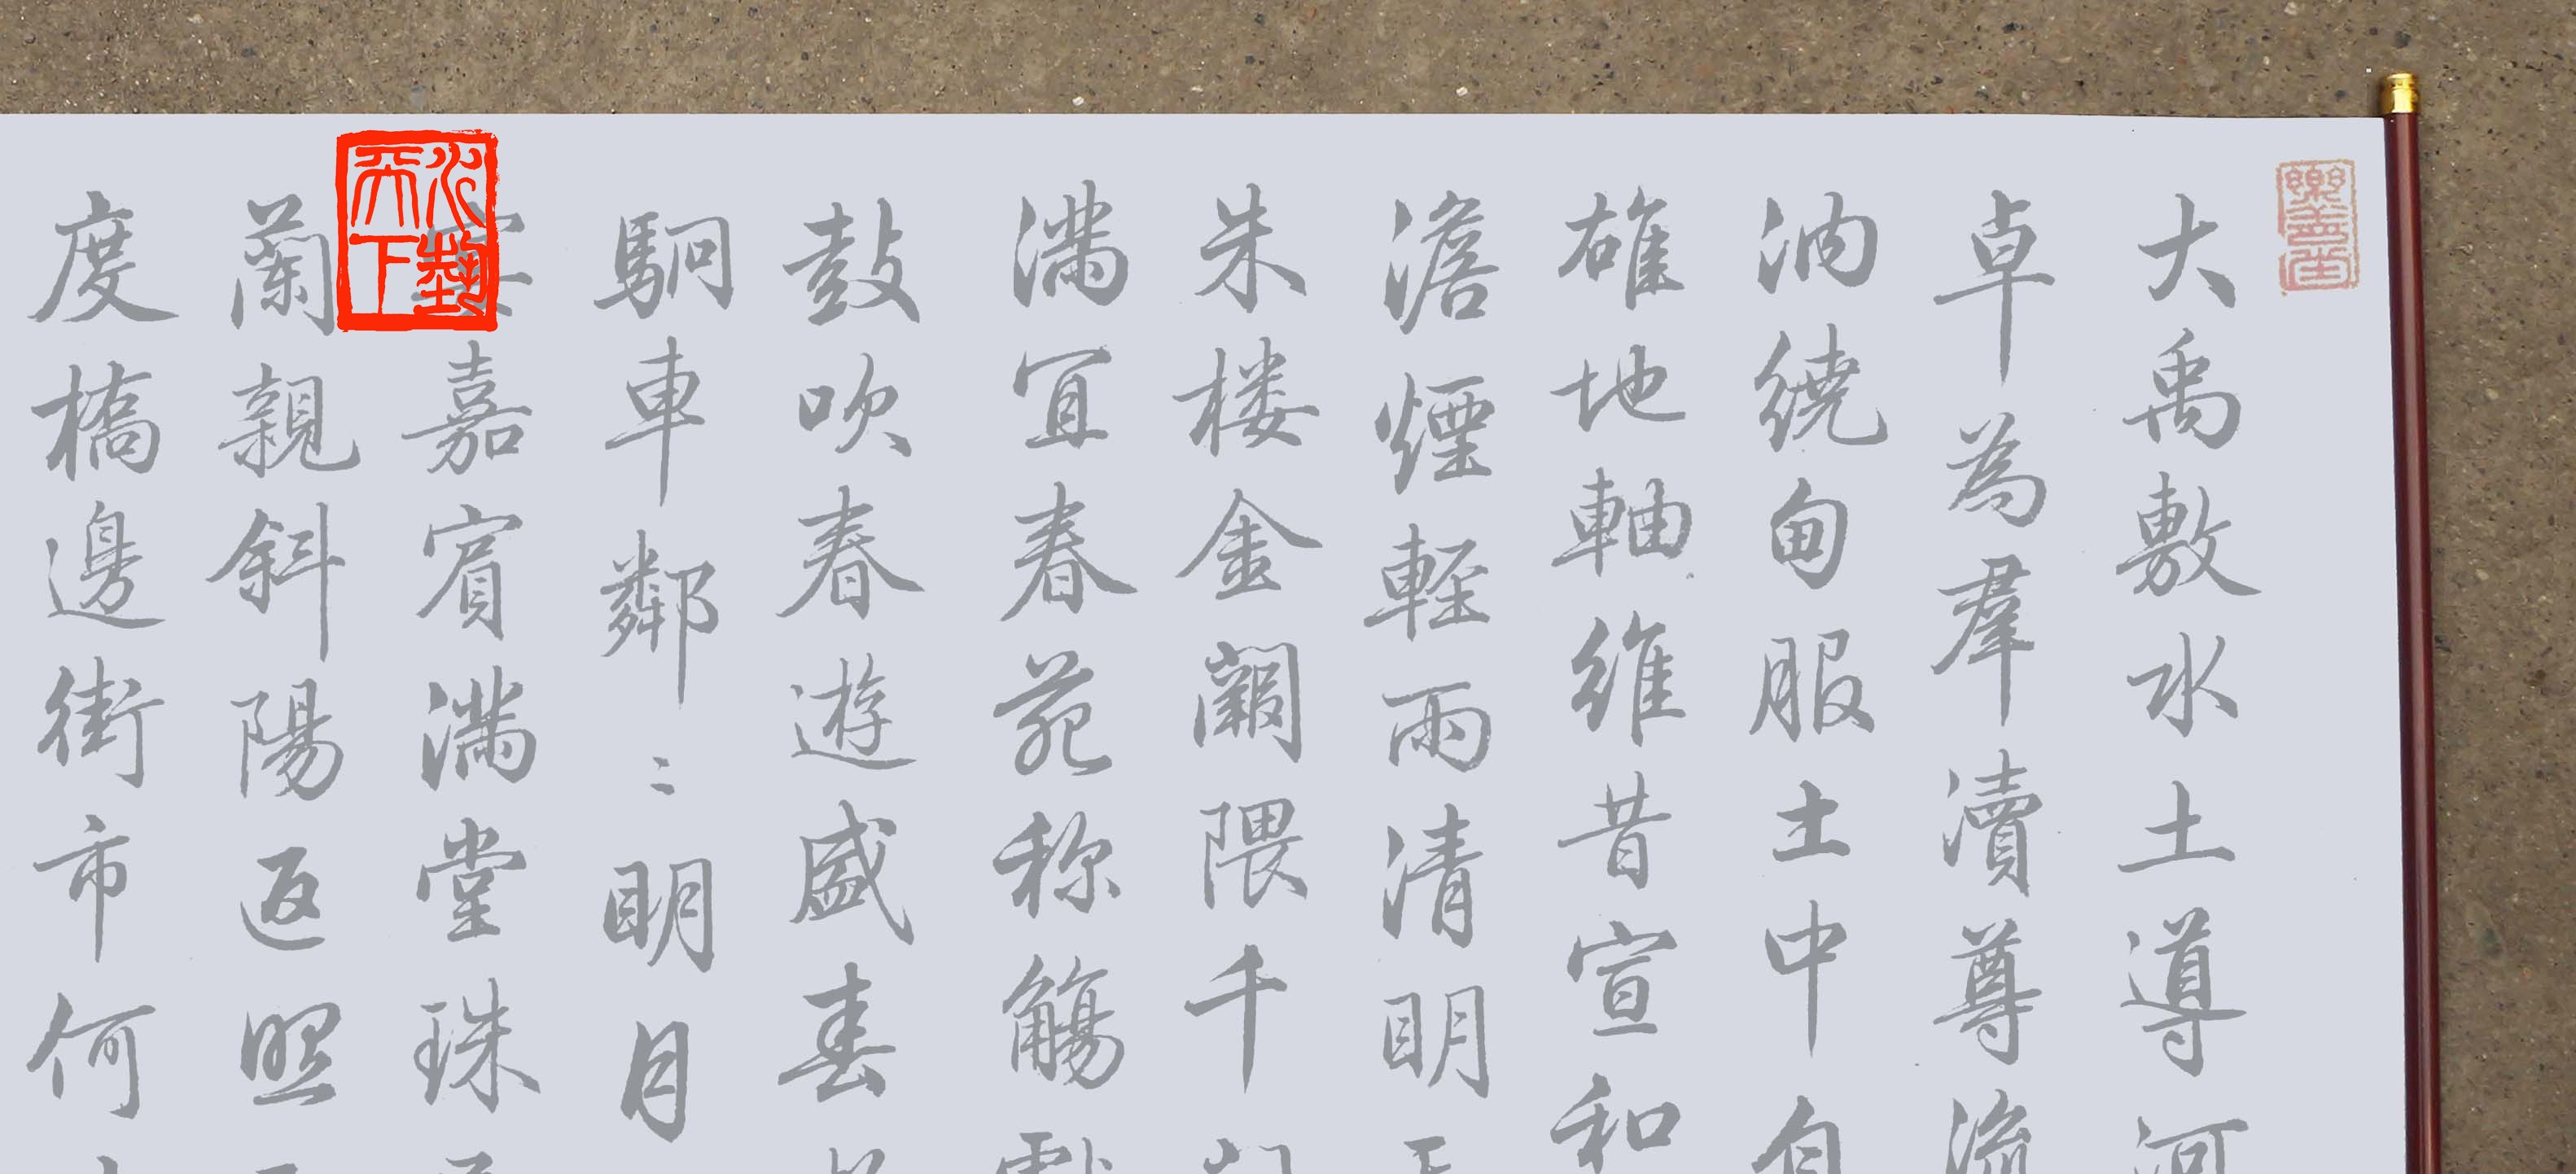 大禹敷水土導河
卓為羣瀆尊流
汭繞甸服土中自
雄地軸維昔宣和
澹煙輕雨清明
朱楼金闕隈千
滿宜春苑称觴獻
鼓吹春遊盛
駉車鄰〻明月
宴嘉賓滿堂珠
蘭親斜陽返照
度橋邊街市何
天下